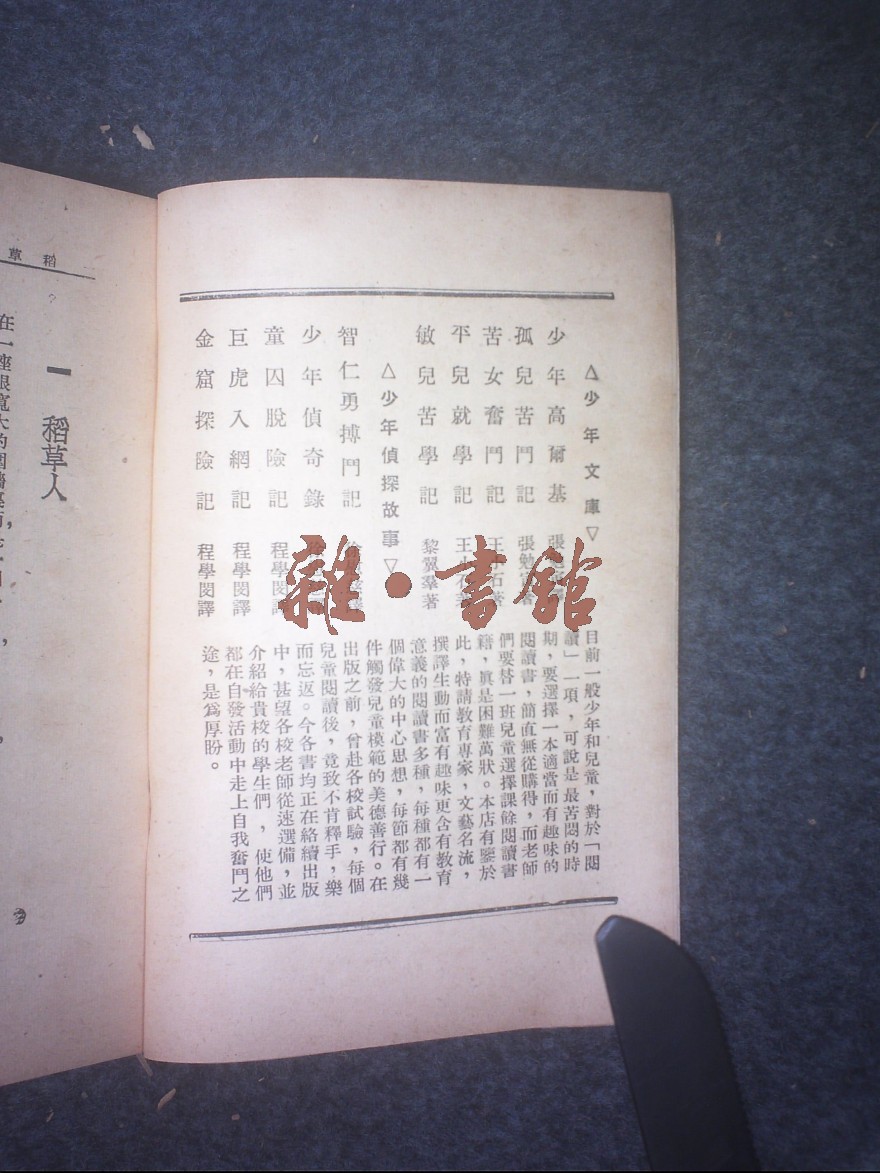 △少年文庫▽
少年高爾基 張
孤兒苦鬥記 張勉
苦女奮鬥記 王 石
平兒就學記 王 石
敏兒苦學記 黎翼羣著
△少年偵探故事▽
智仁勇搏鬥記
少年偵奇錄
童囚脫險記 程學閔譯
巨虎入網記 程學閔譯
金窟探險記 程學閔譯
目前一般少年和兒童，對於「閱
讀」一項，可說是最苦悶的時
期，要選擇一本適當而有趣味的
閱讀書，簡直無從購得，而老師
們要替一班兒童選擇課餘閱讀書
籍，眞是困難萬狀。本店有鑒於
此，特請教育專家，文藝名流，
撰譯生動而富有趣味更含有教育
意義的閱讀書多種，每種都有一
個偉大的中心思想，每節都有幾
件觸發兒童模範的美德善行。在
出版之前，曾赴各校試驗，每個
兒童閱讀後，竟致不肯釋手，樂
而忘返。今各書均正在絡續出版
中，甚望各校老師從速選備，並
介紹給貴校的學生們，使他們
都在自發活動中走上自我奮鬥之
途，是爲厚盼。
雜·書館
稻草
一 稻草人
在一座很寬大的